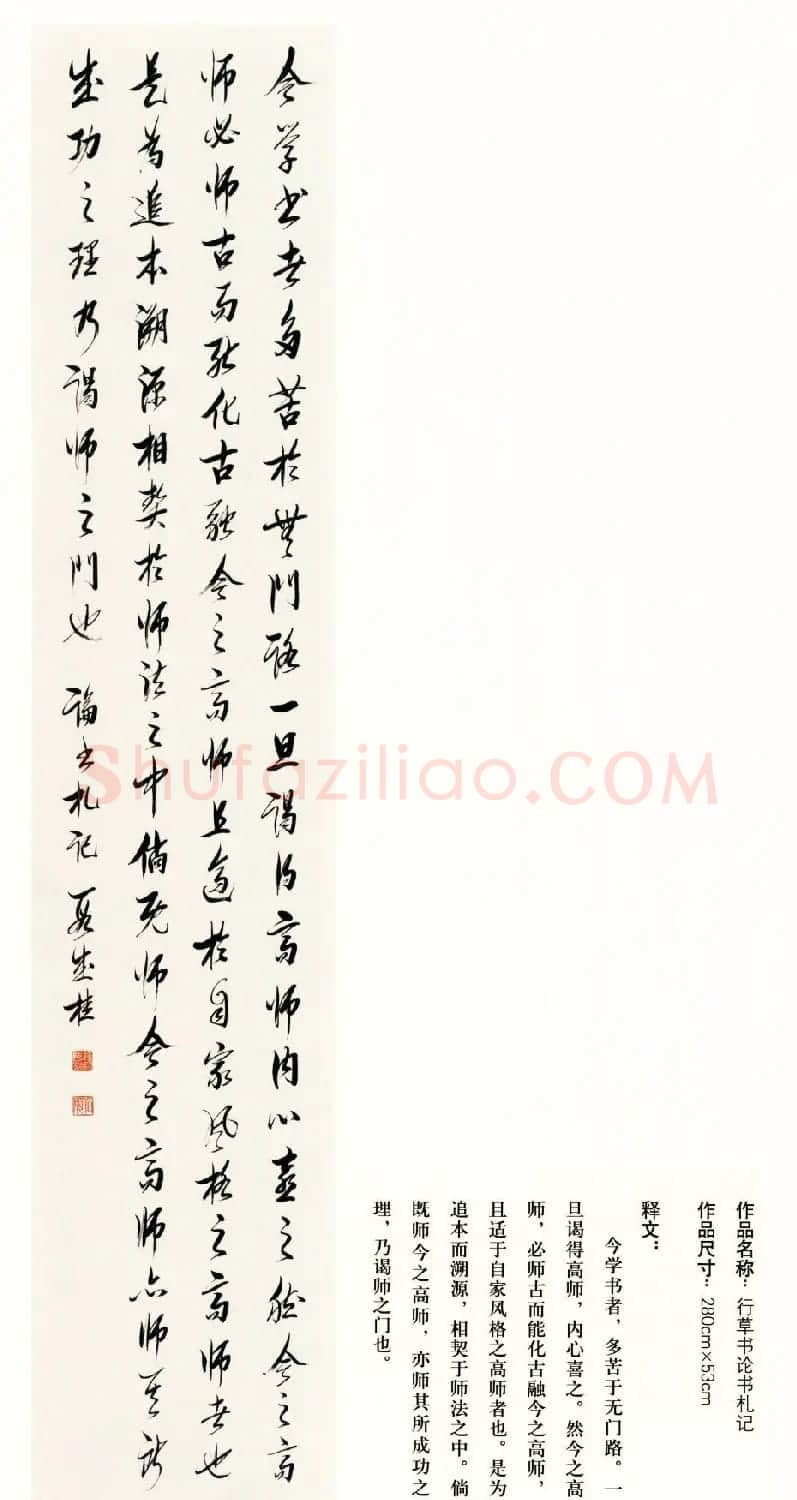 今学书者多苦於無門路一旦谒得高师内心喜之然今之高
师必师古而能化古融今之高师且适於自家风格之高师者也
是为追本溯源相契於师法之中倘既师今之高师亦师其所
成功之理乃谒师之門也 论书札记
成桂
Shufaziliao.COM
作品名称：行草书论书札记
作品尺寸：280cm×53cm
释文：
今学书者，多苦于无门路。一
旦谒得高师，内心喜之。然今之高
师，必师古而能化古融今之高师，
且适于自家风格之高师者也。是为
追本而溯源，相契于师法之中。倘
既师今之高师，亦师其所成功之
理，乃谒师之门也。